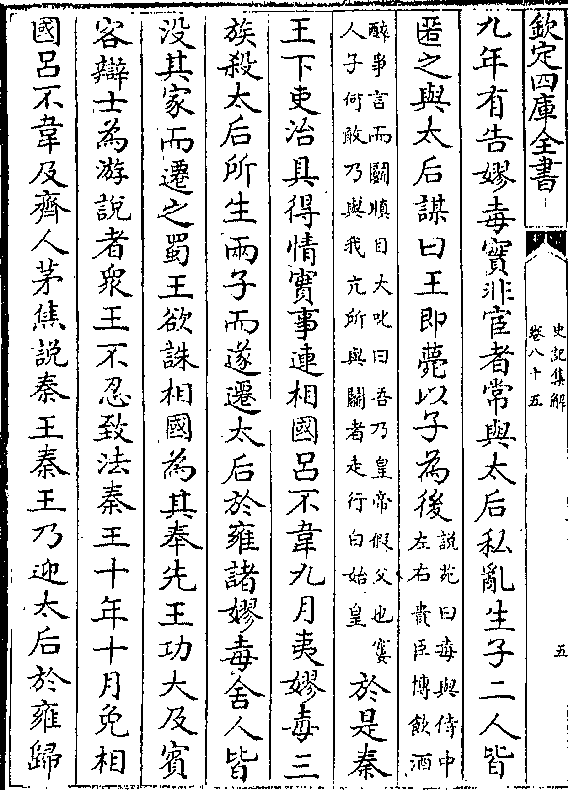 欽定四庫全書
史記集解
卷八十五
五
九年有告嫪毐實非宦者常與太后私亂生子二人皆
匿之與太后謀曰王即薨以子為後
説苑曰毐與侍中
左右貴臣博飲酒
醉爭言而鬭瞋目大叱曰吾乃皇帝假父也窶
人子何敢乃與我亢所與鬭者走行白始皇
於是秦
王下吏治具得情實事連相國呂不韋九月夷嫪毐三
族殺太后所生兩子而遂遷太后於雍諸嫪毐舍人皆
没其家而遷之蜀王欲誅相國為其奉先王功大及賓
客辯士為游說者衆王不忍致法秦王十年十月免相
國呂不韋及齊人茅焦說秦王秦王乃迎太后於雍歸